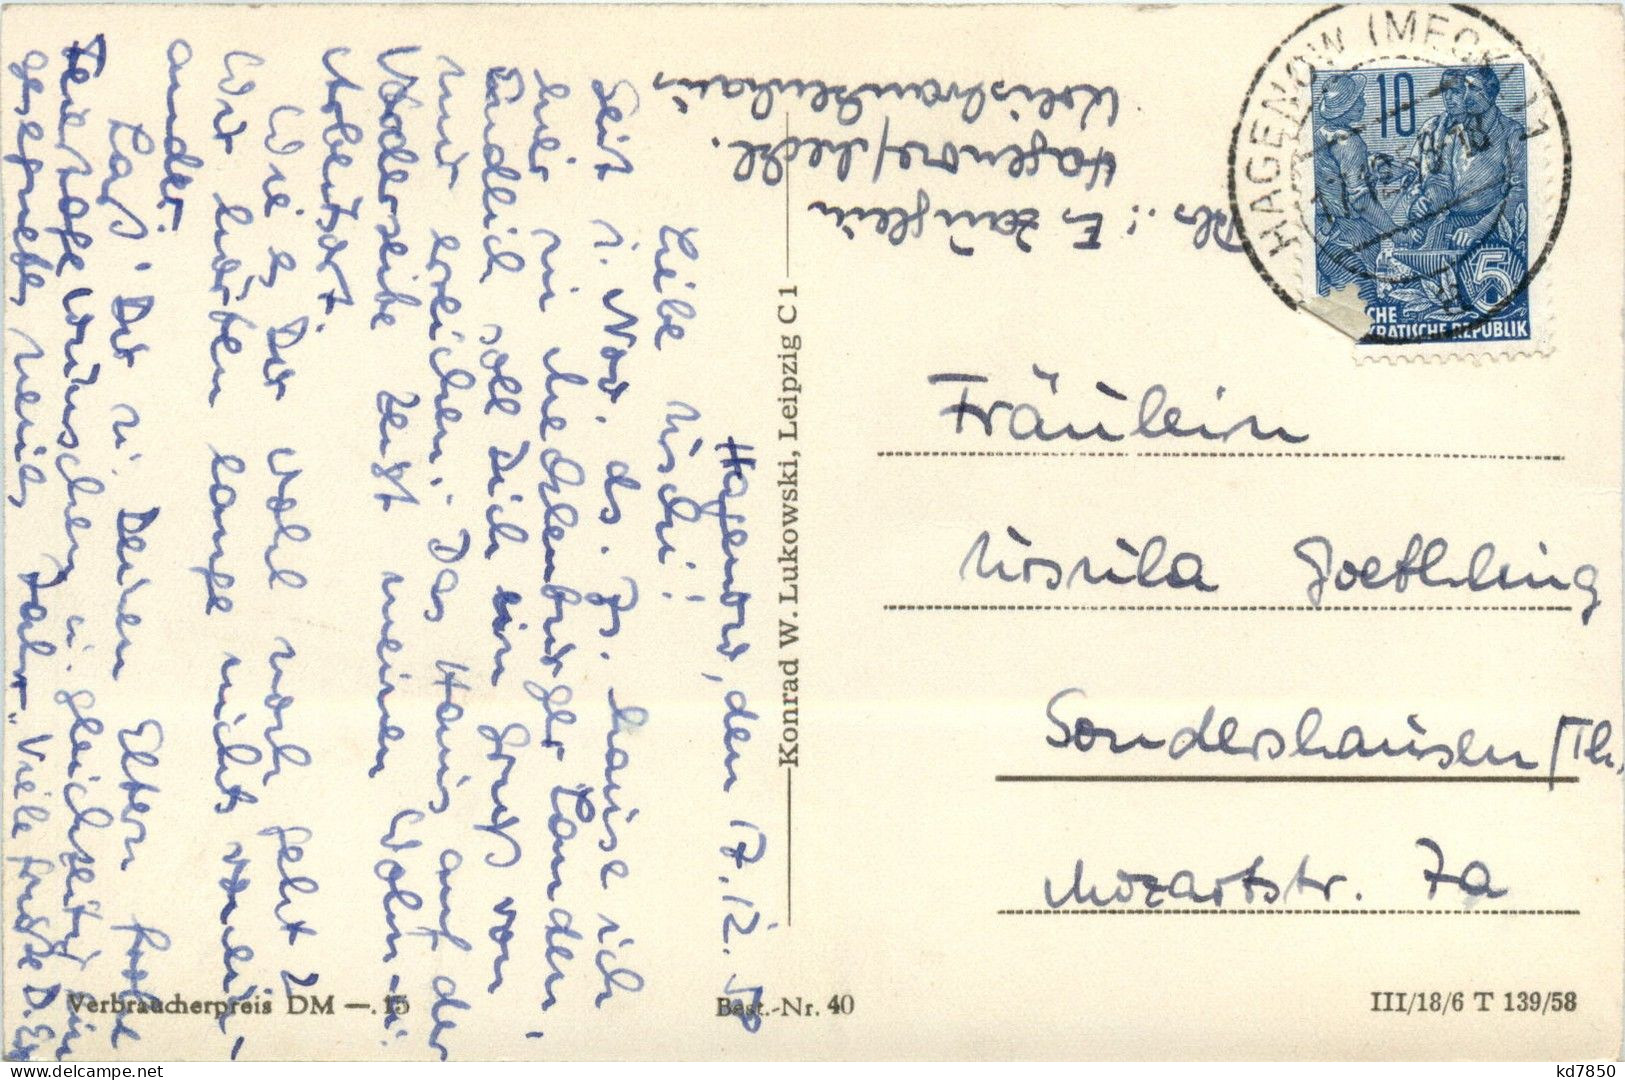 Hagenow, den 17.12.58
Liebe Uschi!
Seit i. Nov. ds. Js. hause ich
hier in Mecklenburger Landen,
Endlich soll Dich ein Gruß von
mir erreichen. Das Haus auf der
Vorderseite zeigt meinen Wohn- u.
Arbeitsort.
Wie es Dir wohl noch geht?
Wir hörten lange nichts vonein-
ander.
Laß' Dir u. Deinen Eltern frohe
Feiertage wünschen u. gleichzeitig ein
gesegnetes neues Jahr. Viele Grüße D.
Abs.: E
Hagenow/Meckl.
Kreiskrankenhaus
Konrad W. Lukowski, Leipzig C 1
HAGENOW (MECKL) 1
10
5
CHE
KRATISCHE REPUBLIK
Fräulein
Ursula Goethling
Sondershausen/Th.
Mozartstr. 7a
Verbraucherpreis DM —.15
Best.-Nr. 40
III/18/6 T 139/58
kd7850